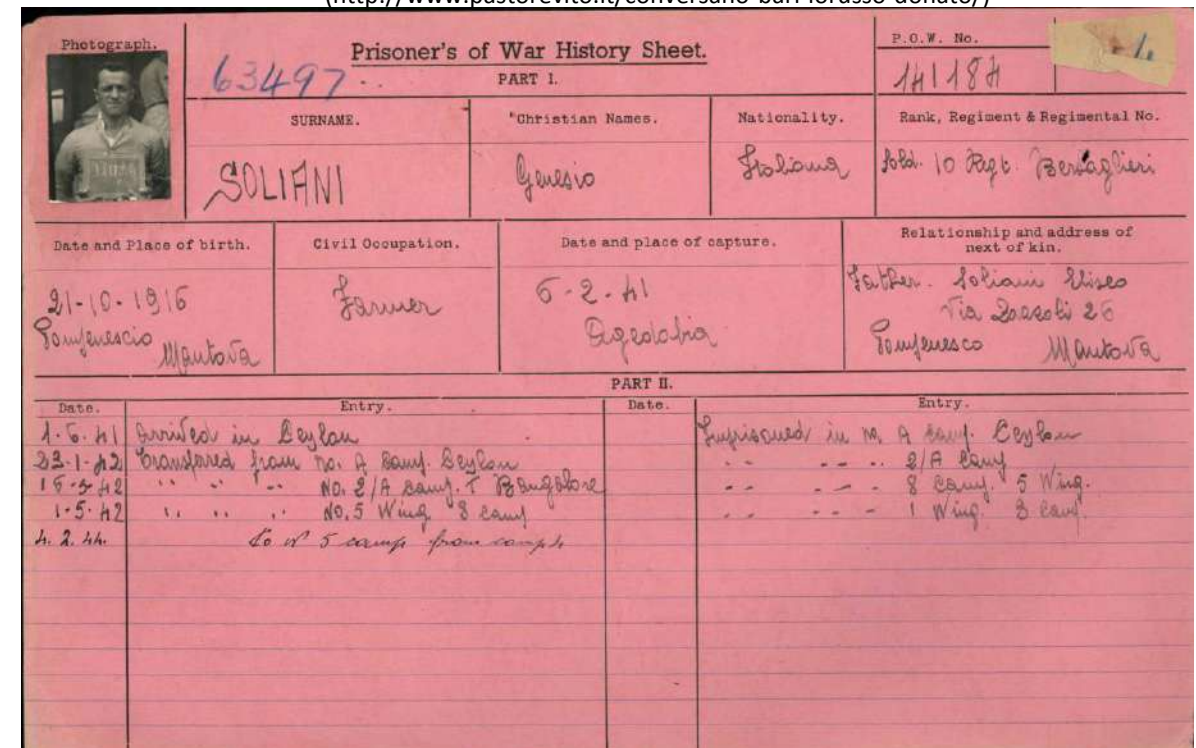 (http://www.pastorevito.it/conversano-bari-lorusso-donato/)
Photograph.
Prisoner's of War History Sheet.
P.O.W. No.
63497
PART I.
141184
SURNAME.
Christian Names.
Nationality.
Rank, Regiment & Regimental No.
SOLIANI
Genesio
Italiana
Sold. 10 Regt. Bersaglieri
Date and Place of birth.
Civil Occupation.
Date and place of capture.
Relationship and address of
next of kin.
21-10-1916
Farmer
6-2-41
Father. Soliani Eliseo
Via 26
Mantova
Agedabia
Pomponesco Mantova
PART II.
Date.
Entry.
Date.
Entry.
1.6.41 Arrived in Ceylon
Imprisoned in No. A Camp. Ceylon
23-1-42 Transferred from No. A Camp. Ceylon
" " " " 2/A Camp
42 " " " No. 2/A Camp. Bangalore
" " " " 8 Camp. 5 Wing.
1-5-42 " " " No. 5 Wing 8 Camp
" " " " 1 Wing 8 Camp.
4.2.44. to N° 5 camp from camp